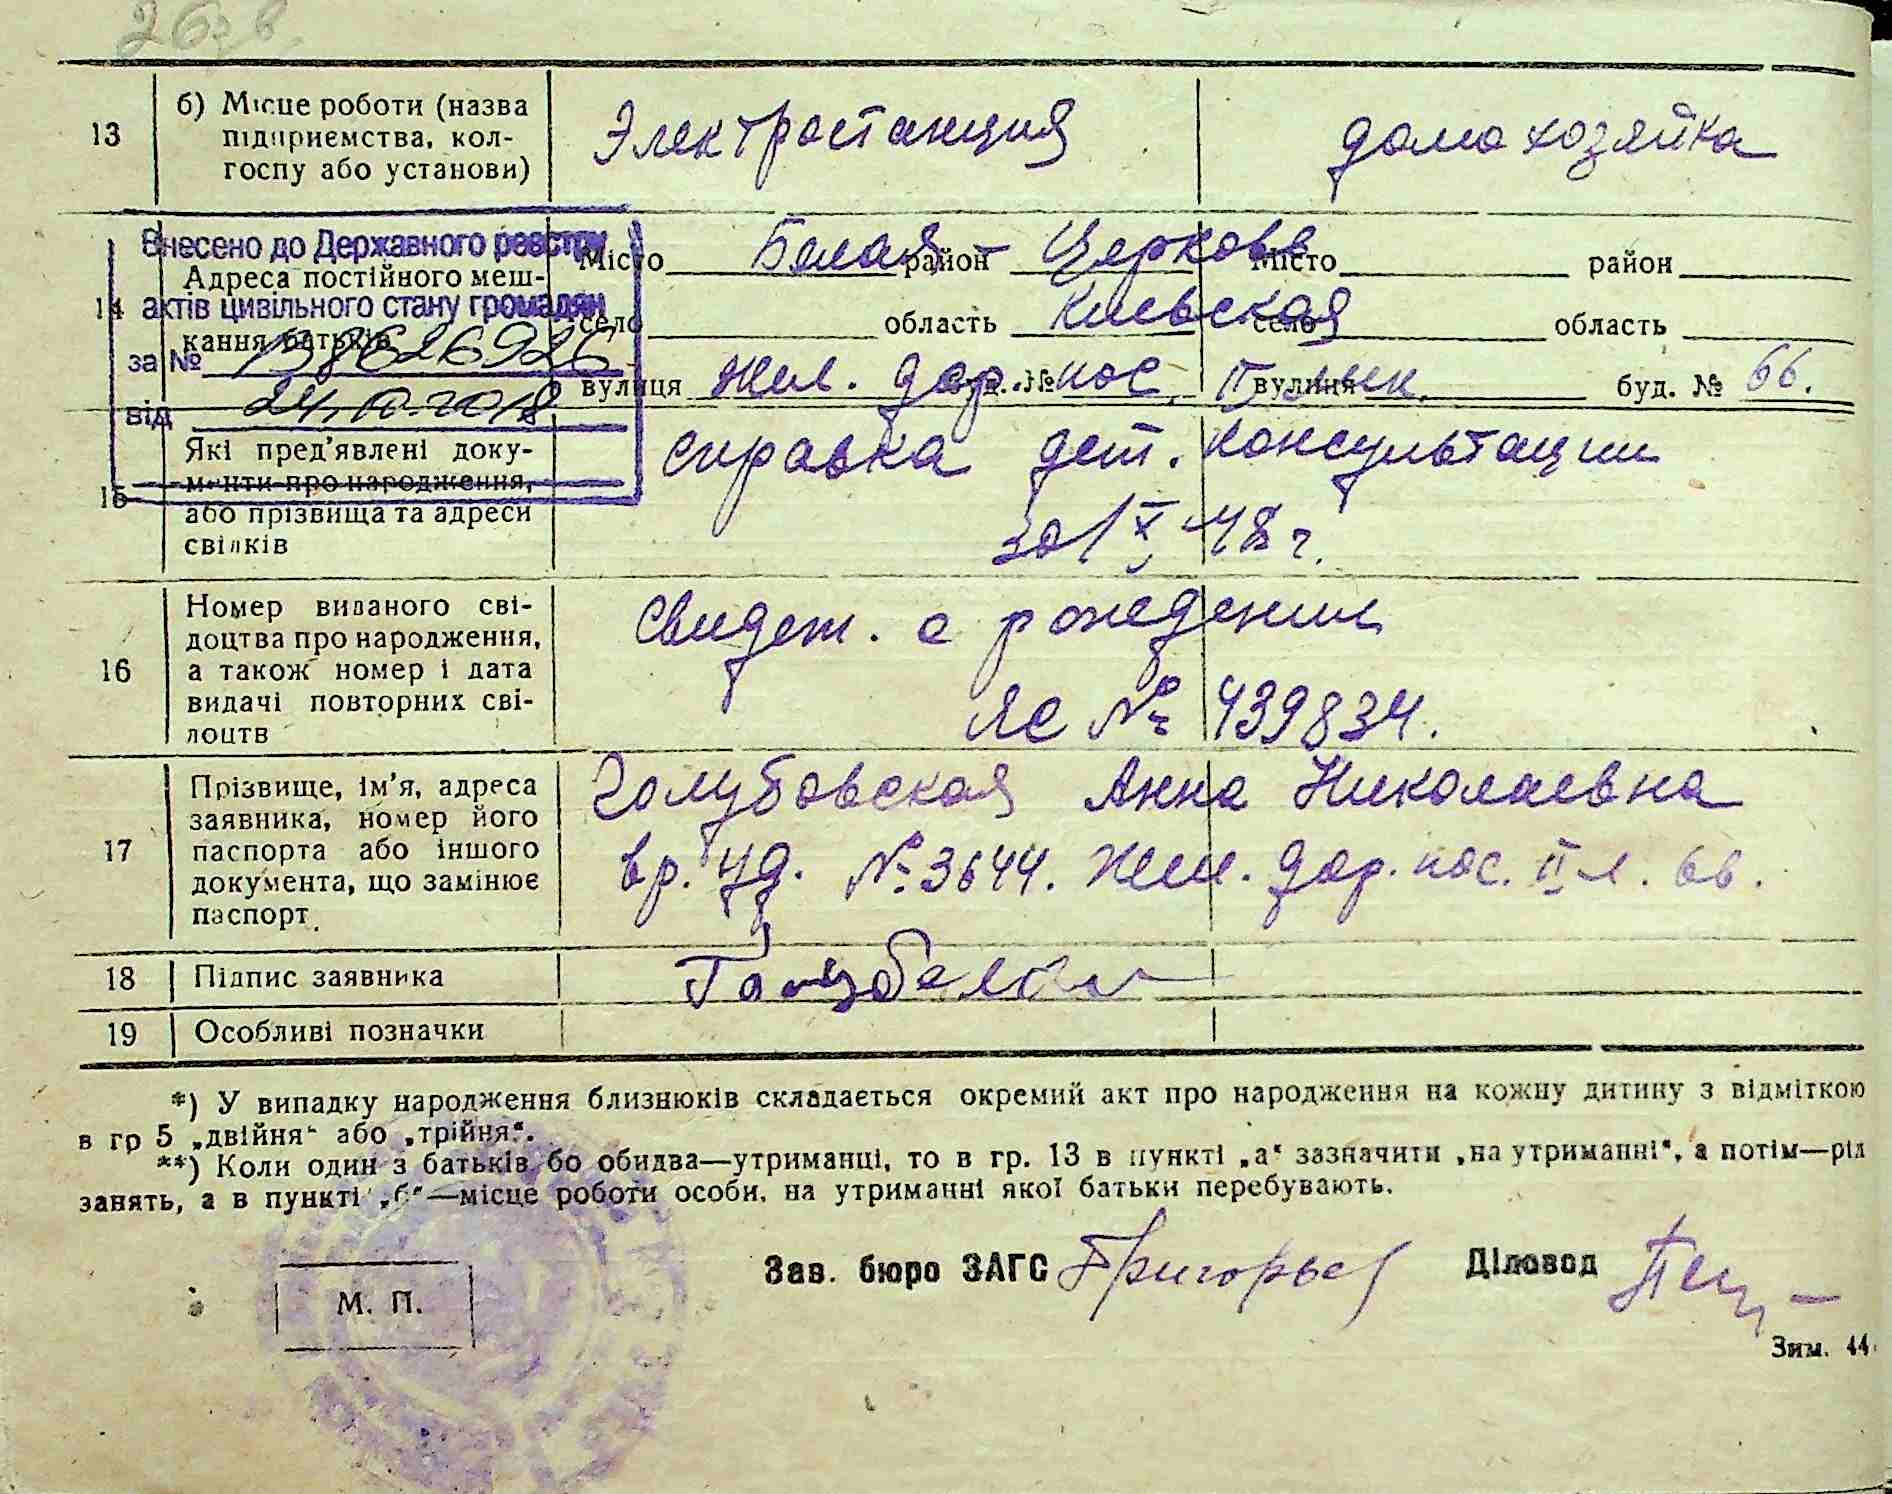 13 б) Місце роботи (назва підприємства, колгоспу або установи) Электростанция домохозяйка
Внесено до Державного реєстру
актів цивільного стану громадян
за № 138626926
від 24.10.2018
14 Адреса постійного мешкання батьків
Місто Белая район Церковь Місто район
село область Киевская село область
вулиця Жел. дор. буд. № пос. II вулиця лин. буд. № 66.
15 Які пред'явлені документи про народження, або прізвища та адреси свідків
справка дет. консультации
за 1/X 48 г.
16 Номер виданого свідоцтва про народження, а також номер і дата видачі повторних свідоцтв
Свидет. о рождении
ЯС № 439834.
17 Прізвище, ім'я, адреса заявника, номер його паспорта або іншого документа, що замінює паспорт
Голубовская Анна Николаевна
вр. уд. № 3644. Жел. дор. пос. II л. 66.
18 Підпис заявника
19 Особливі позначки
*) У випадку народження близнюків складається окремий акт про народження на кожну дитину з відміткою
в гр 5 „двійня“ або „трійня“.
**) Коли один з батьків бо обидва—утриманці, то в гр. 13 в пункті „а“ зазначити „на утриманні“, а потім—рід
занять, а в пункті „б“—місце роботи особи, на утриманні якої батьки перебувають.
М. П.
Зав. бюро ЗАГС Григорьев Діловод
Зим. 44